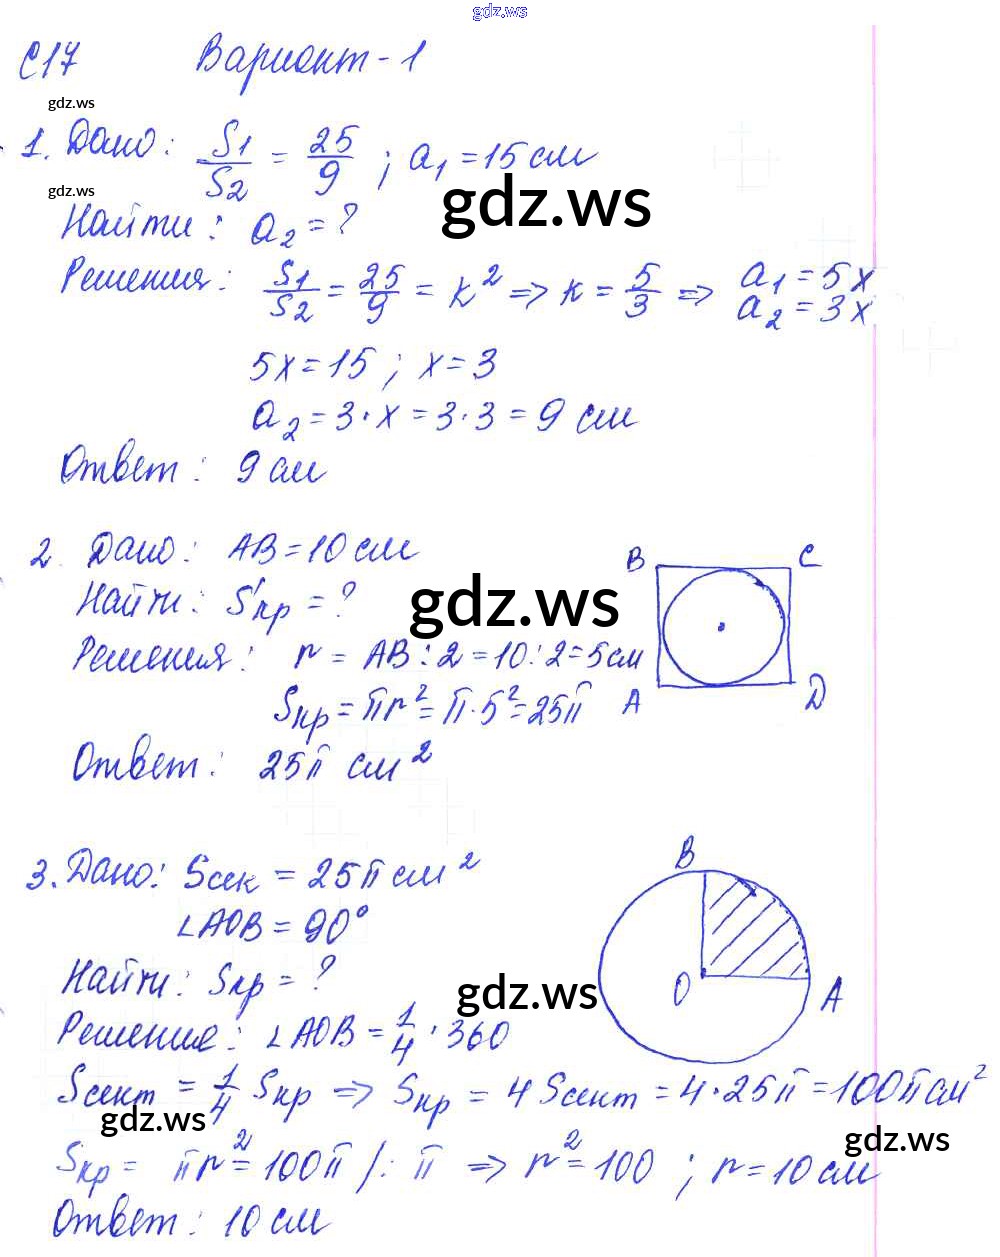 gdz.ws
С17 Вариант-1
gdz.ws
1. Дано: S1/S2 = 25/9 ; a₁ = 15 см
gdz.ws
gdz.ws
Найти: a₂ = ?
Решения: S1/S2 = 25/9 = k² => k = 5/3 => a₁ = 5x
a₂ = 3x
5x = 15 ; x = 3
a₂ = 3·x = 3·3 = 9 см
Ответ: 9 см
2. Дано: AB = 10 см
B C
Найти: Sкр = ?
gdz.ws
Решения: r = AB : 2 = 10 : 2 = 5 см
Sкр = πr² = π·5² = 25π
A D
Ответ: 25π см²
3. Дано: Sсек = 25π см²
B
∠AOB = 90°
Найти: Sкр = ?
gdz.ws
O A
Решение: ∠AOB = 1/4 · 360
Sсект = 1/4 Sкр => Sкр = 4 Sсект = 4·25π = 100π см²
gdz.ws
gdz.ws
Sкр = πr² = 100π /: π => r² = 100 ; r = 10 см
Ответ: 10 см